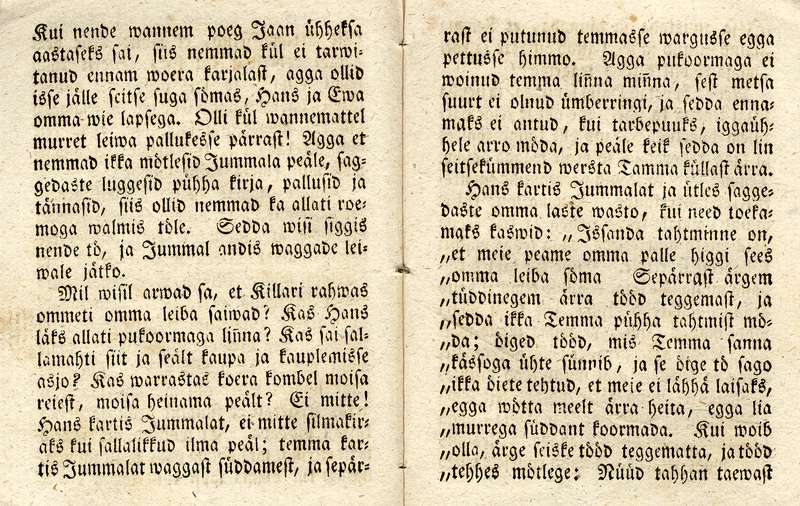 Kui nende wannem poeg Jaan ühheksa
aastaseks sai, siis nemmad kül ei tarwi-
tanud ennam woera karjalast, agga ollid
isse jälle seitse suga sömas, Hans ja Ewa
omma wie lapsega. Olli kül wannemattel
murret leiwa pallukesse pärrast! Agga et
nemmad ikka mötlesid Jummala peäle, sag-
gedaste luggesid pühha kirja, pallusid ja
tännasid, siis ollid nemmad ka allati roe-
moga walmis töle. Sedda wisi siggis
nende tö, ja Jummal andis waggade lei-
wale jätko.
Mil wisil arwad sa, et Killari rahwas
ommeti omma leiba saiwad? Kas Hans
läks allati pukoormaga liñna? Kas sai sal-
lamahti siit ja seält kaupa ja kauplemisse
asjo? Kas warrastas koera kombel moisa
reiest, moisa heinama peält? Ei mitte!
Hans kartis Jummalat, ei mitte silmakir-
aks kui sallalikkud ilma peäl; temma kar-
tis Jummalat waggast süddamest, ja sepär-
rast ei putunud temmasse wargusse egga
pettusse himmo. Agga pukoormaga ei
woinud temma liñna miñna, sest metsa
suurt ei olnud ümberringi, ja sedda enna-
maks ei antud, kui tarbepuuks, iggaüh-
hele arro möda, ja peäle keik sedda on lin
seitsekümmend wersta Tamma küllast ärra.
Hans kartis Jummalat ja ütles sagge-
daste omma laste wasto, kui need toeka-
maks kaswid: „Issanda tahtminne on,
„et meie peame omma palle higgi sees
„omma leiba söma Sepärrast ärgem
„tüddinegem ärra tööd teggemast, ja
„sedda ikka Temma pühha tahtmist mö-
„da; öiged tööd, mis Temma sanna
„kässoga ühte sünnib, ja se öige tö sago
„ikka öiete tehtud, et meie ei lähhä laisaks,
„egga wötta meelt ärra heita, egga lia
„murrega süddant koormada. Kui woib
„olla, ärge seiske tööd teggematta, ja tööd
„tehhes mötlege: Nüüd tahhan taewast